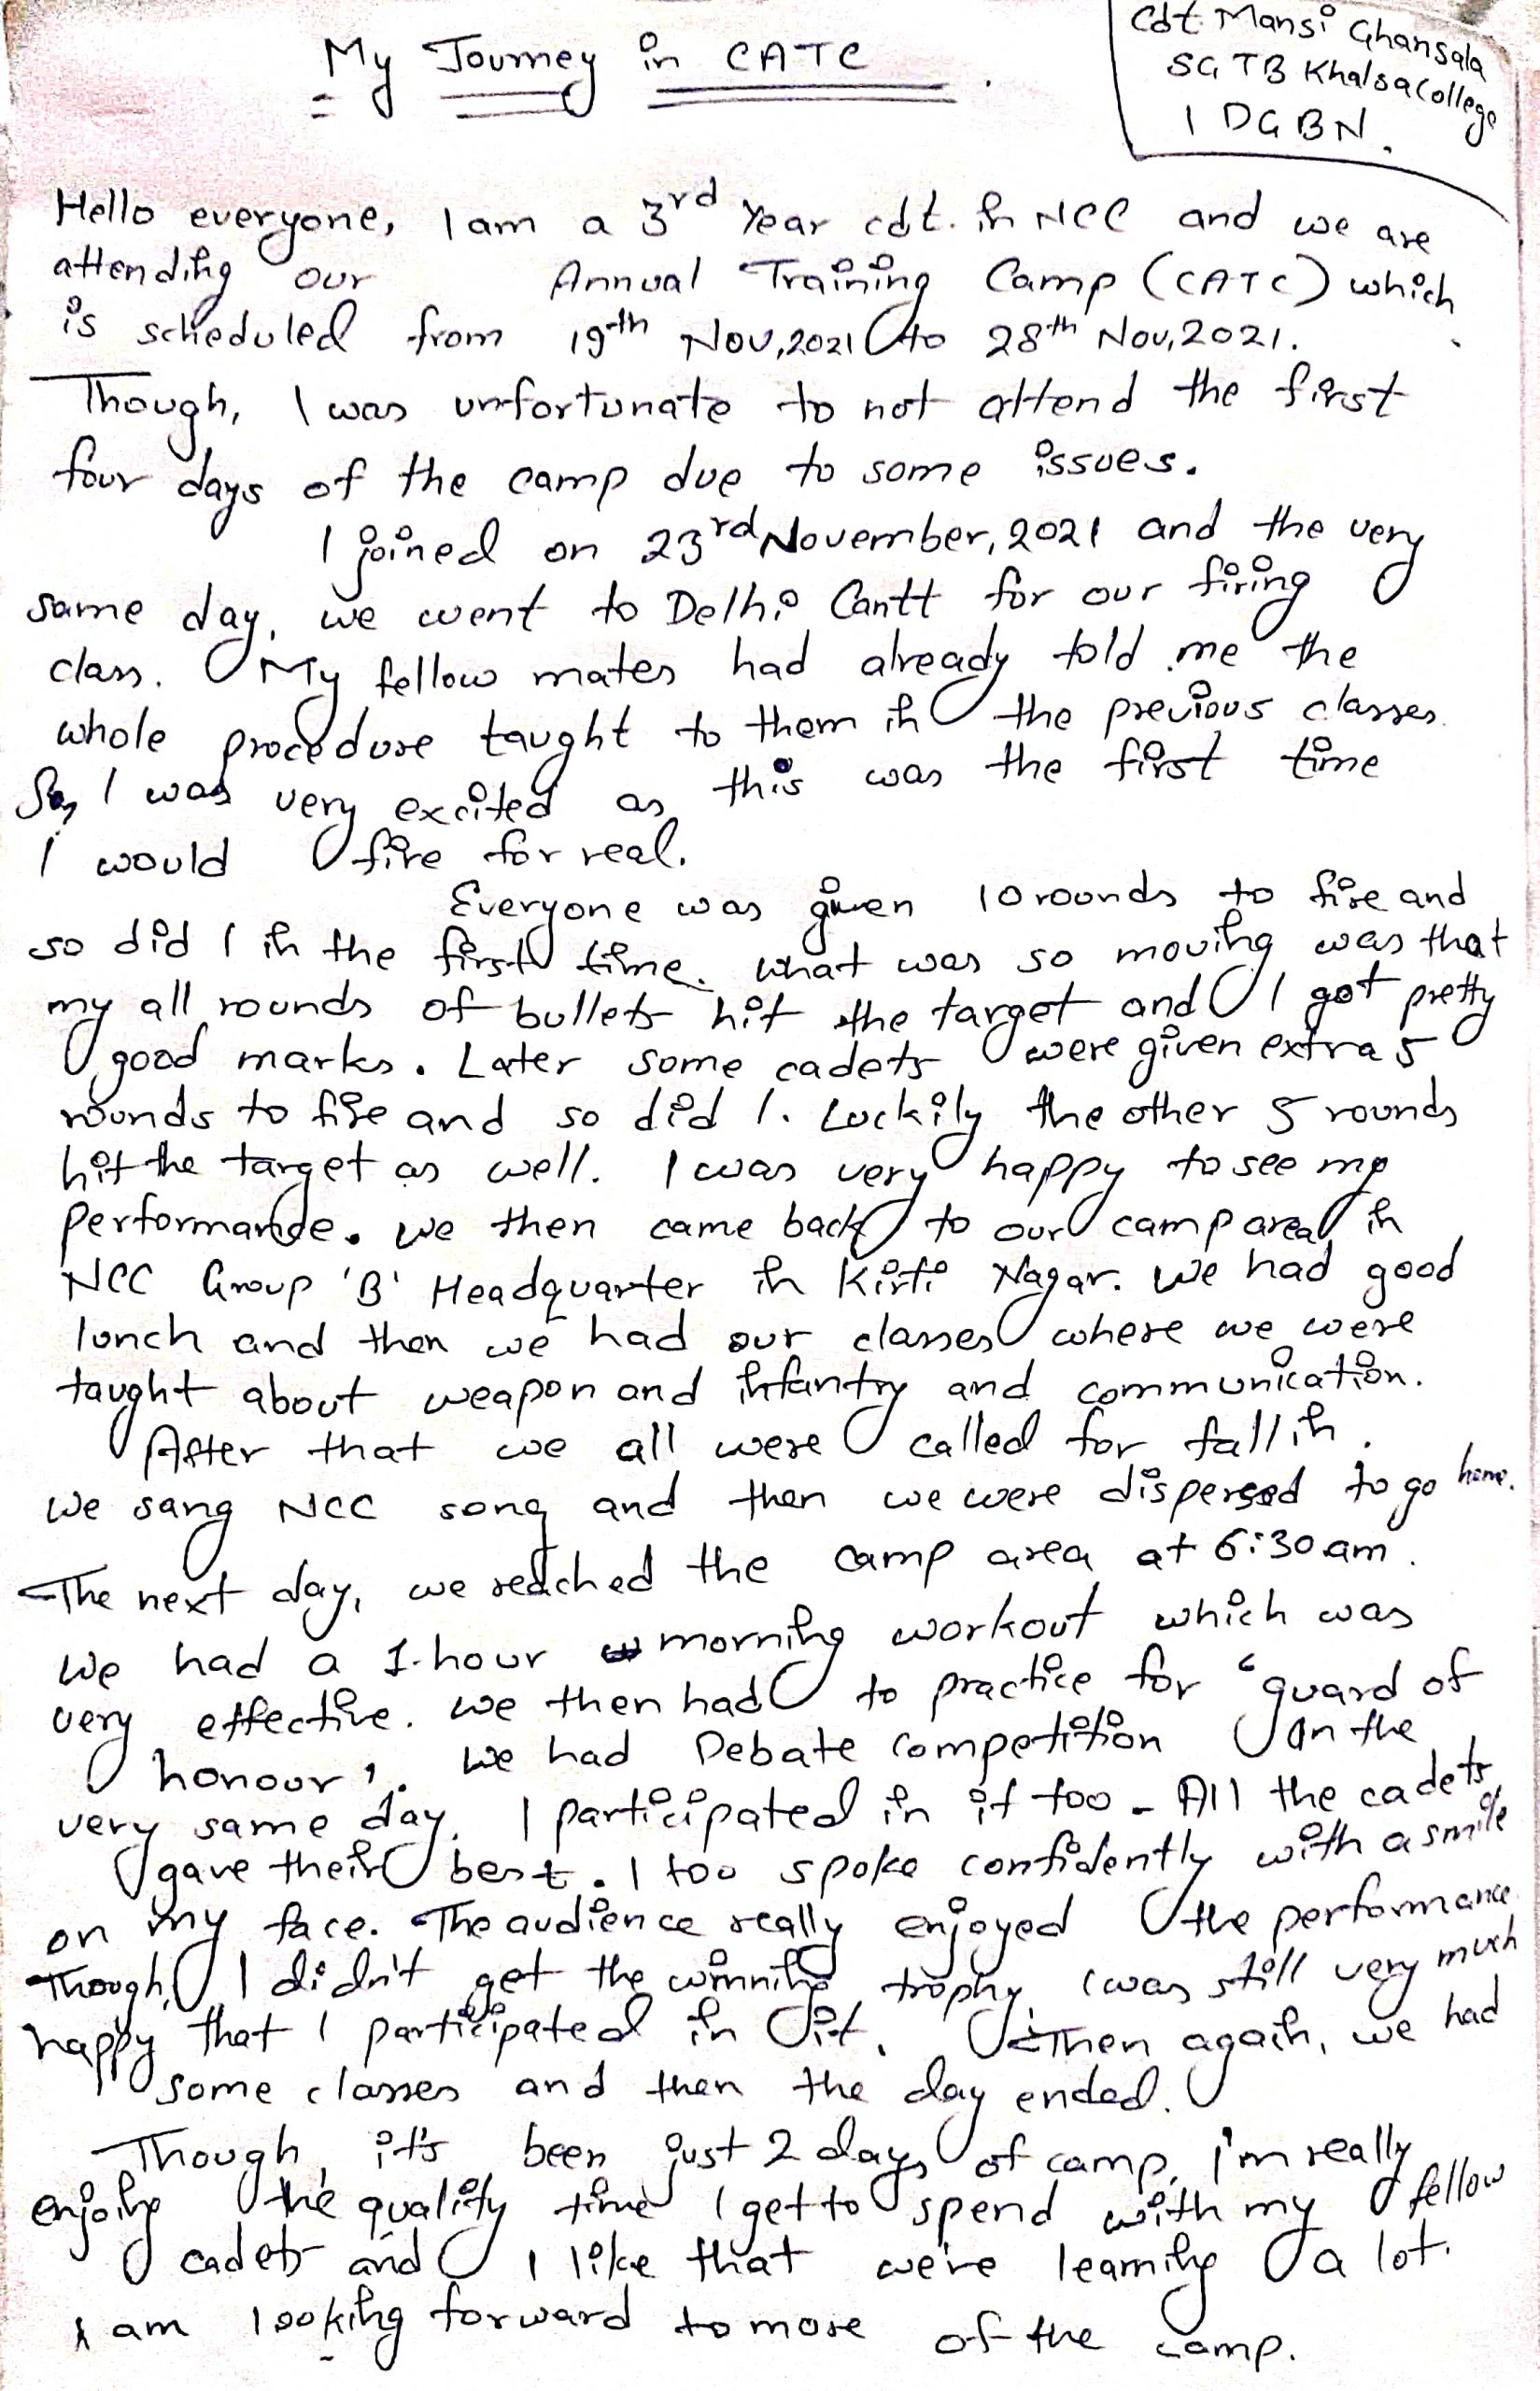 My Journey in CATC.
Cdt. Mansi Ghansala
SGTB Khalsa College
1 DGBN.
Hello everyone, I am a 3rd Year cdt. in NCC and we are
attending our Annual Training Camp (CATC) which
is scheduled from 19th Nov,2021 to 28th Nov,2021.
Though, I was unfortunate to not attend the first
four days of the camp due to some issues.
I joined on 23rd November, 2021 and the very
same day, we went to Delhi Cantt for our firing
class. My fellow mates had already told me the
whole procedure taught to them in the previous classes.
So, I was very excited as this was the first time
I would fire for real.
Everyone was given 10 rounds to fire and
so did I in the first time. What was so moving was that
my all rounds of bullets hit the target and I got pretty
good marks. Later some cadets were given extra 5
rounds to fire and so did I. Luckily the other 5 rounds
hit the target as well. I was very happy to see my
performance. We then came back to our camp area in
NCC Group 'B' Headquarter in Kirti Nagar. We had good
lunch and then we had our classes where we were
taught about weapon and infantry and communication.
After that we all were called for fall in.
We sang NCC song and then we were dispersed to go home.
The next day, we reached the camp area at 6:30 am.
We had a 1-hour morning workout which was
very effective. We then had to practice for 'guard of
honour'. We had Debate competition on the
very same day. I participated in it too. All the cadets
gave their best. I too spoke confidently with a smile
on my face. The audience really enjoyed the performance.
Though, I didn't get the winning trophy, I was still very much
happy that I participated in it. Then again, we had
some classes and then the day ended.
Though, it's been just 2 days of camp, I'm really
enjoing the quality time I get to spend with my fellow
cadets and I like that we're learning a lot.
I am looking forward to more of the camp.